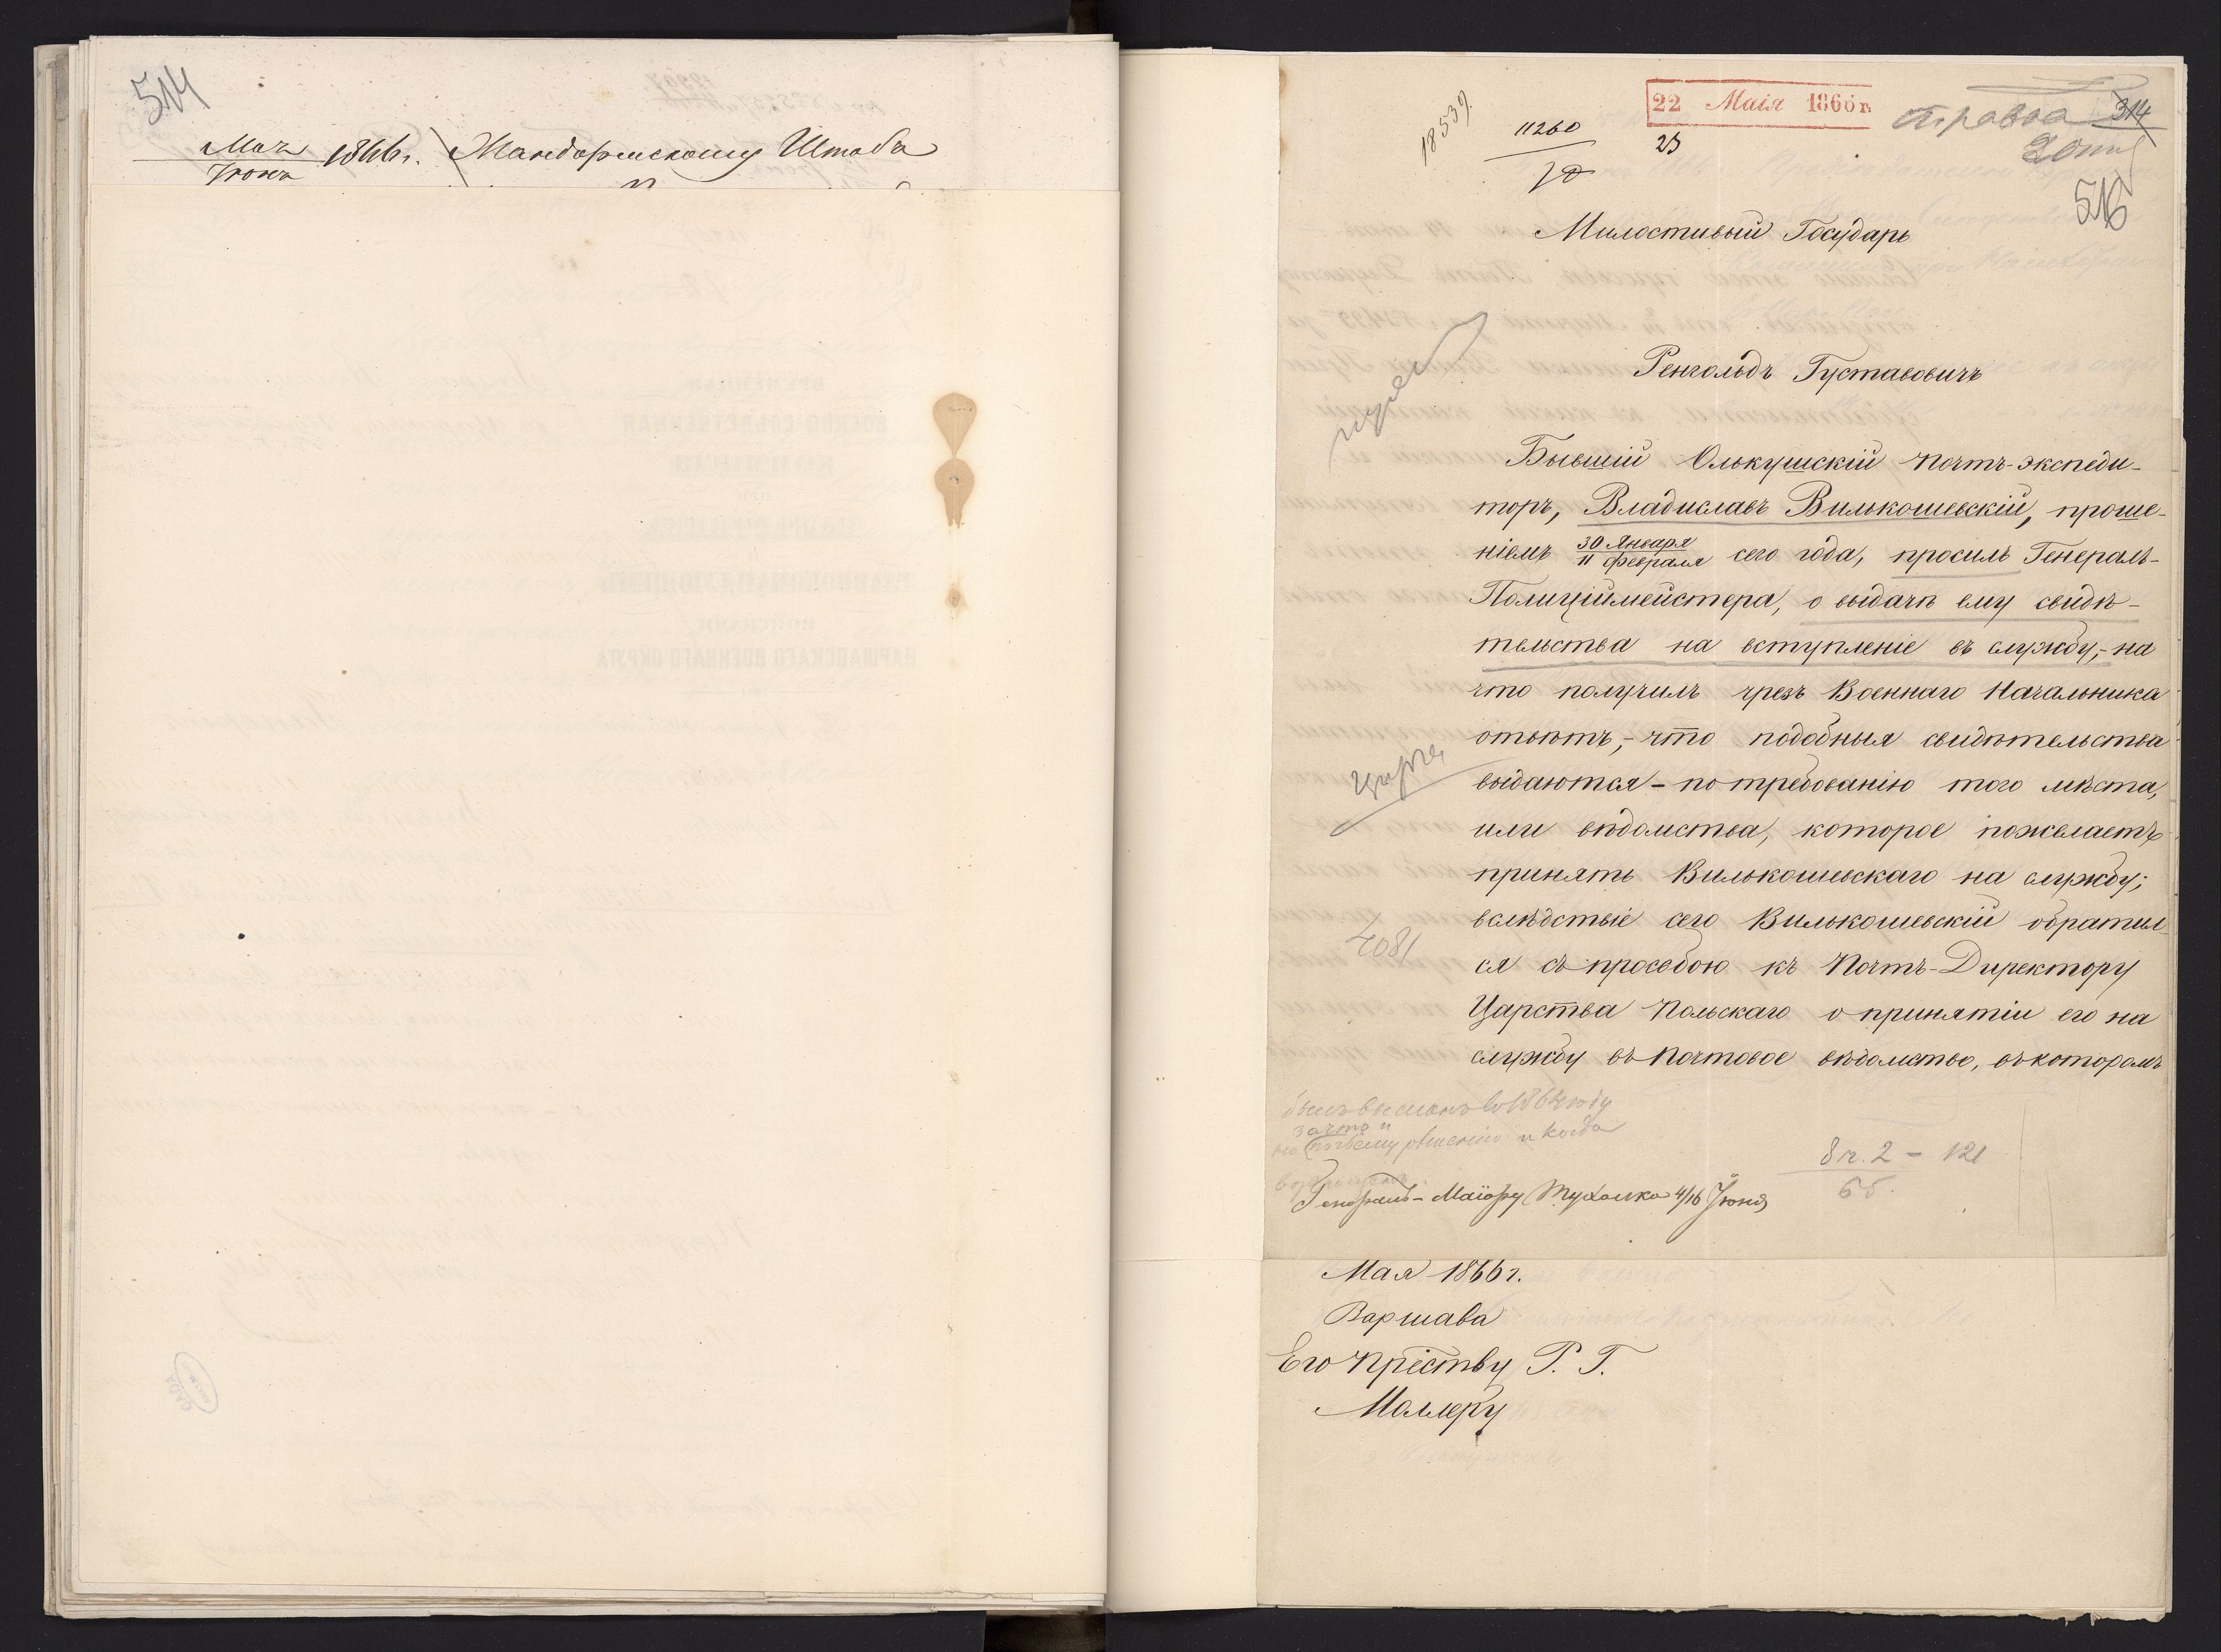 514
Мая
Іюня 1866 г. Жандармскому Штабу
18539.
11260
22 Маія 1866 г.
23
справка
314
516
Милостивый Государь
Ренгольдъ Густавовичъ
Бывшій Олькушскій Почтъ-экспеди-
торъ, Владиславъ Вилькошевскій, проше-
ніемъ 30 Января
11 Февраля сего года, просилъ Генералъ-
Полиціймейстера, о выдачѣ ему свидѣ-
тельства на вступленіе въ службу,- на
что получилъ чрезъ Военнаго Начальника
отвѣтъ,- что подобныя свидѣтельства
выдаются - по требованію того мѣста,
или вѣдомства, которое пожелаетъ
принять Вилькошевскаго на службу;
вслѣдствіе сего Вилькошевскій обратил-
ся съ просьбою къ Почтъ-Директору
Царства Польскаго о принятіи его на
службу въ Почтовое вѣдомство, въ которомъ
4081
былъ высланъ въ 1864 году
за что и
по чьему рѣшенію и когда
8 к. 2 - 121
65.
Генералъ-Маіору Тухолка 4/16 Іюня
Мая 1866 г.
Варшава
Его Пр֊ству Р. Г.
Моллеру